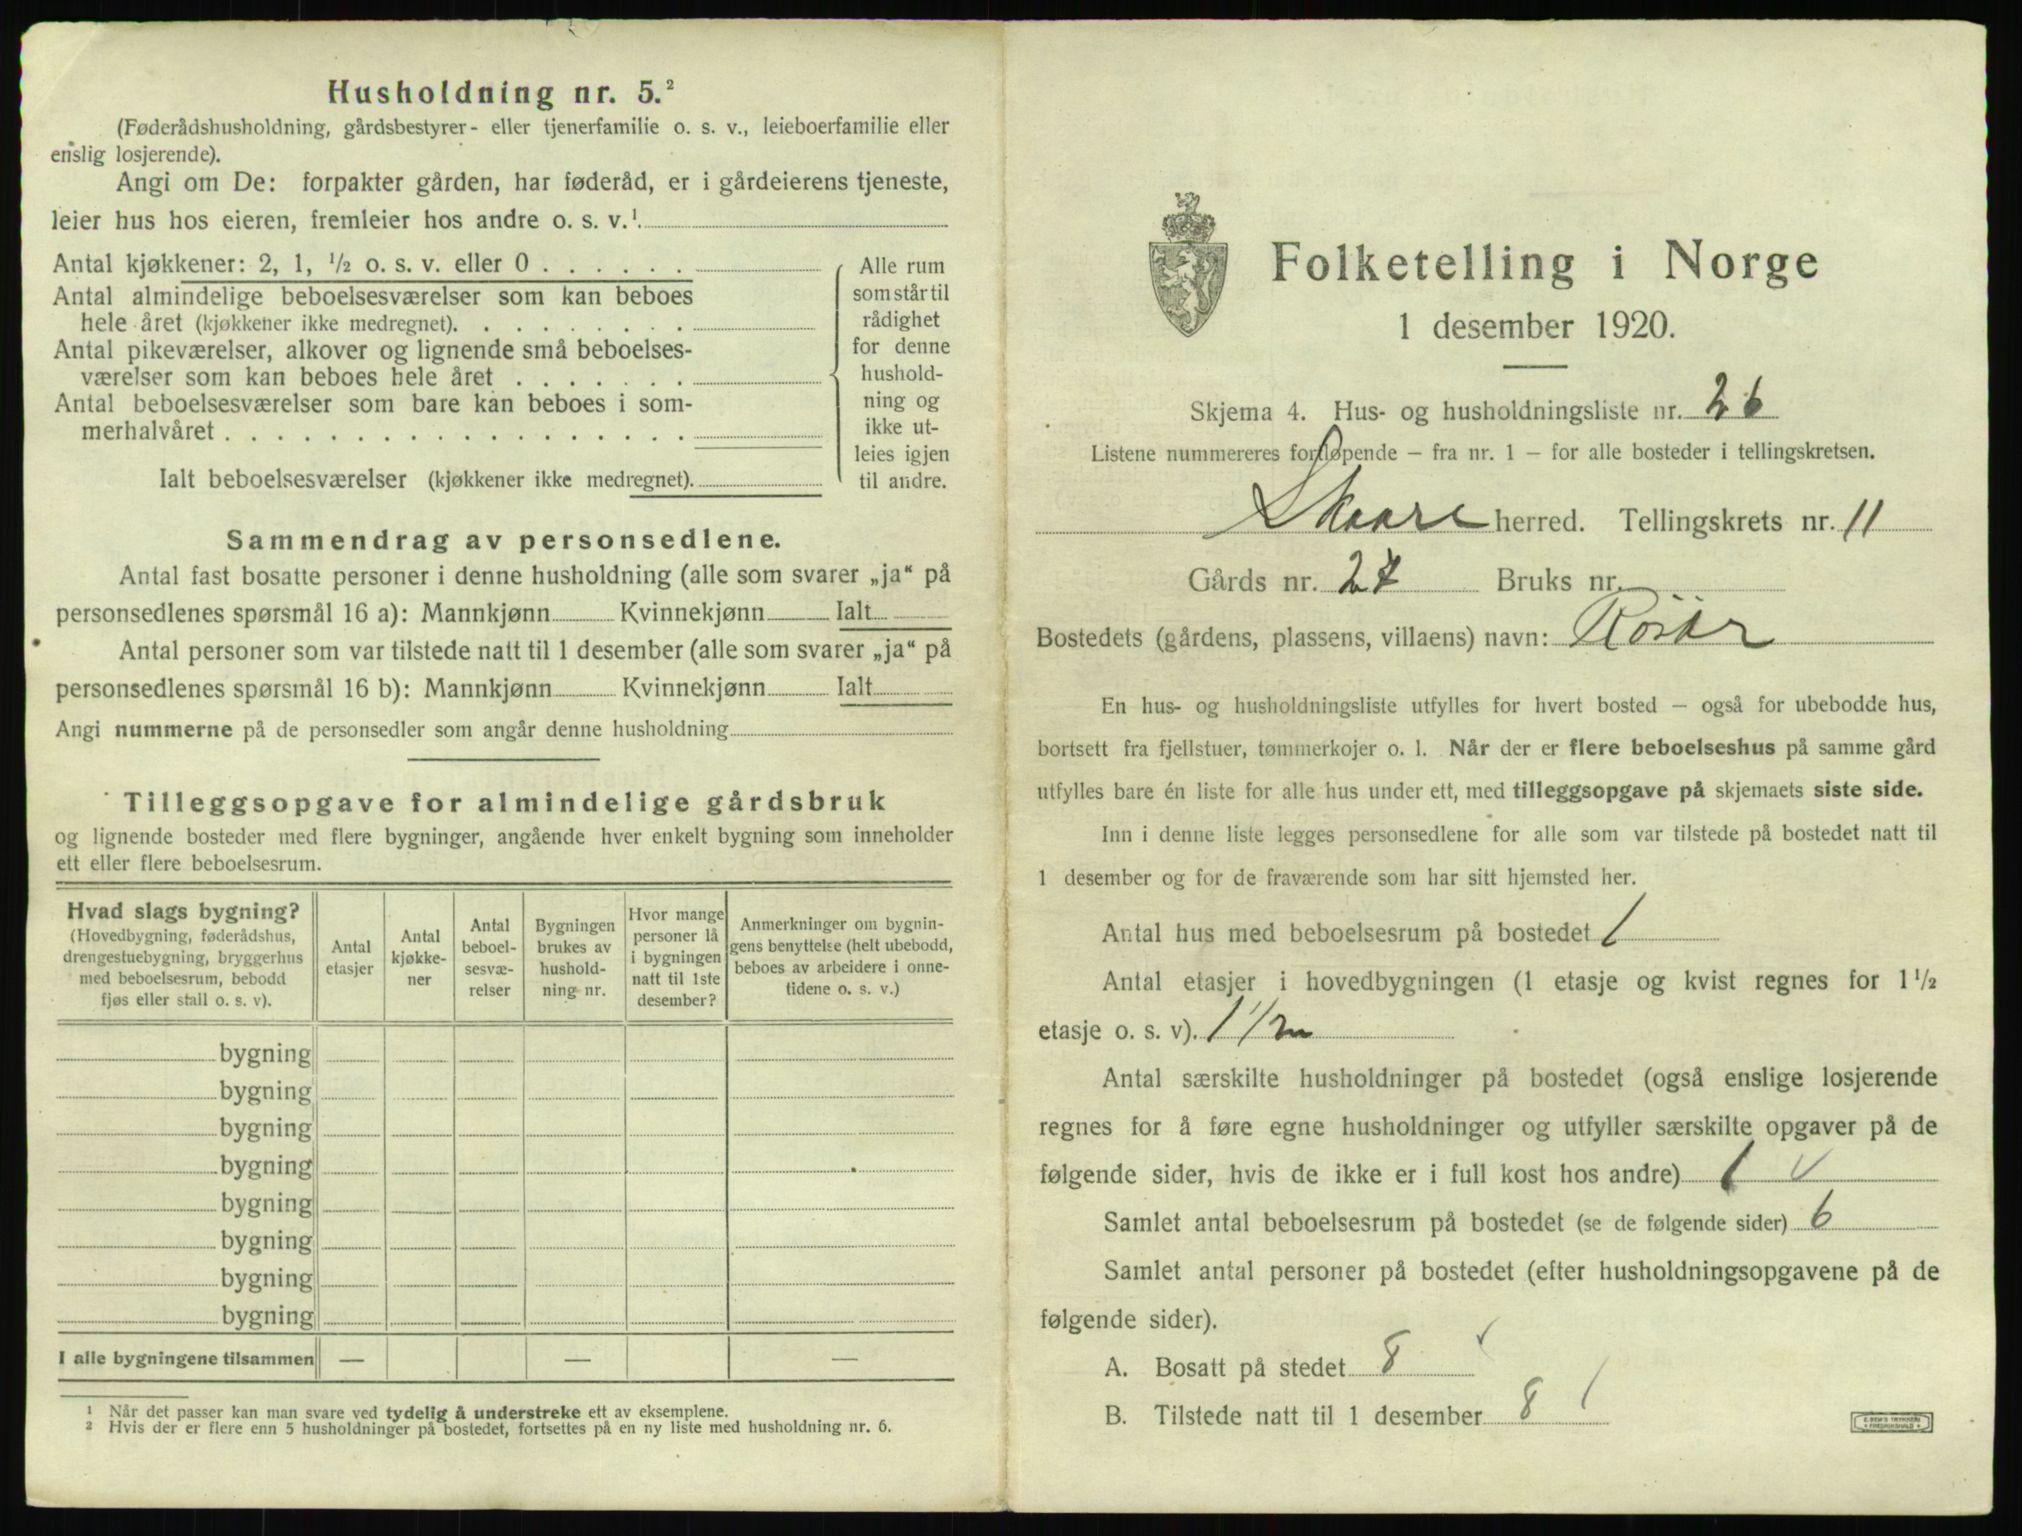 Husholdning nr. 5.²
(Føderådshusholdning, gårdsbestyrer- eller tjenerfamilie o. s. v., leieboerfamilie eller
enslig losjerende).
Angi om De: forpakter gården, har føderåd, er i gårdeierens tjeneste,
leier hus hos eieren, fremleier hos andre o. s. v.¹.
Antal kjøkkener: 2, 1, ½ o. s. v. eller 0 . . . . . .
Antal almindelige beboelsesværelser som kan beboes
hele året (kjøkkener ikke medregnet). . . . . . . . .
Antal pikeværelser, alkover og lignende små beboelses-
værelser som kan beboes hele året . . . . . . .
Antal beboelsesværelser som bare kan beboes i som-
merhalvåret . . . . . . . . . . . . . . . . . .
Ialt beboelsesværelser (kjøkkener ikke medregnet).
Alle rum
som står til
rådighet
for denne
hushold-
ning og
ikke ut-
leies igjen
til andre.
Sammendrag av personsedlene.
Antal fast bosatte personer i denne husholdning (alle som svarer „ja“ på
personsedlenes spørsmål 16 a): Mannkjønn Kvinnekjønn Ialt
Antal personer som var tilstede natt til 1 desember (alle som svarer „ja“ på
personsedlenes spørsmål 16 b): Mannkjønn Kvinnekjønn Ialt
Angi nummerne på de personsedler som angår denne husholdning
Tilleggsopgave for almindelige gårdsbruk
og lignende bosteder med flere bygninger, angående hver enkelt bygning som inneholder
ett eller flere beboelsesrum.
Hvad slags bygning?
(Hovedbygning, føderådshus,
drengestuebygning, bryggerhus
med beboelsesrum, bebodd
fjøs eller stall o. s. v).
Antal
etasjer
Antal
kjøkke-
ner
Antal
beboel-
sesvæ-
relser
Bygningen
brukes av
hushold-
ning nr.
Hvor mange
personer lå
i bygningen
natt til 1ste
desember?
Anmerkninger om bygnin-
gens benyttelse (helt ubebodd,
beboes av arbeidere i onne-
tidene o. s. v.)
bygning
bygning
bygning
bygning
bygning
bygning
bygning
bygning
I alle bygningene tilsammen — — —
¹ Når det passer kan man svare ved tydelig å understreke ett av eksemplene.
² Hvis der er flere enn 5 husholdninger på bostedet, fortsettes på en ny liste med husholdning nr. 6.
Folketelling i Norge
1 desember 1920.
Skjema 4. Hus- og husholdningsliste nr. 26
Listene nummereres fortløpende – fra nr. 1 – for alle bosteder i tellingskretsen.
Skaare herred. Tellingskrets nr. 11
Gårds nr. 27 Bruks nr.
Bostedets (gårdens, plassens, villaens) navn:
En hus- og husholdningsliste utfylles for hvert bosted – også for ubebodde hus,
bortsett fra fjellstuer, tømmerkojer o. l. Når der er flere beboelseshus på samme gård
utfylles bare én liste for alle hus under ett, med tilleggsopgave på skjemaets siste side.
Inn i denne liste legges personsedlene for alle som var tilstede på bostedet natt til
1 desember og for de fraværende som har sitt hjemsted her.
Antal hus med beboelsesrum på bostedet 1
Antal etasjer i hovedbygningen (1 etasje og kvist regnes for 1 ½
etasje o. s. v). 1 ½
Antal særskilte husholdninger på bostedet (også enslige losjerende
regnes for å føre egne husholdninger og utfyller særskilte opgaver på de
følgende sider, hvis de ikke er i full kost hos andre) 1 ✓
Samlet antal beboelsesrum på bostedet (se de følgende sider) 6
Samlet antal personer på bostedet (efter husholdningsopgavene på de
følgende sider).
A. Bosatt på stedet 8 ✓
B. Tilstede natt til 1 desember 8